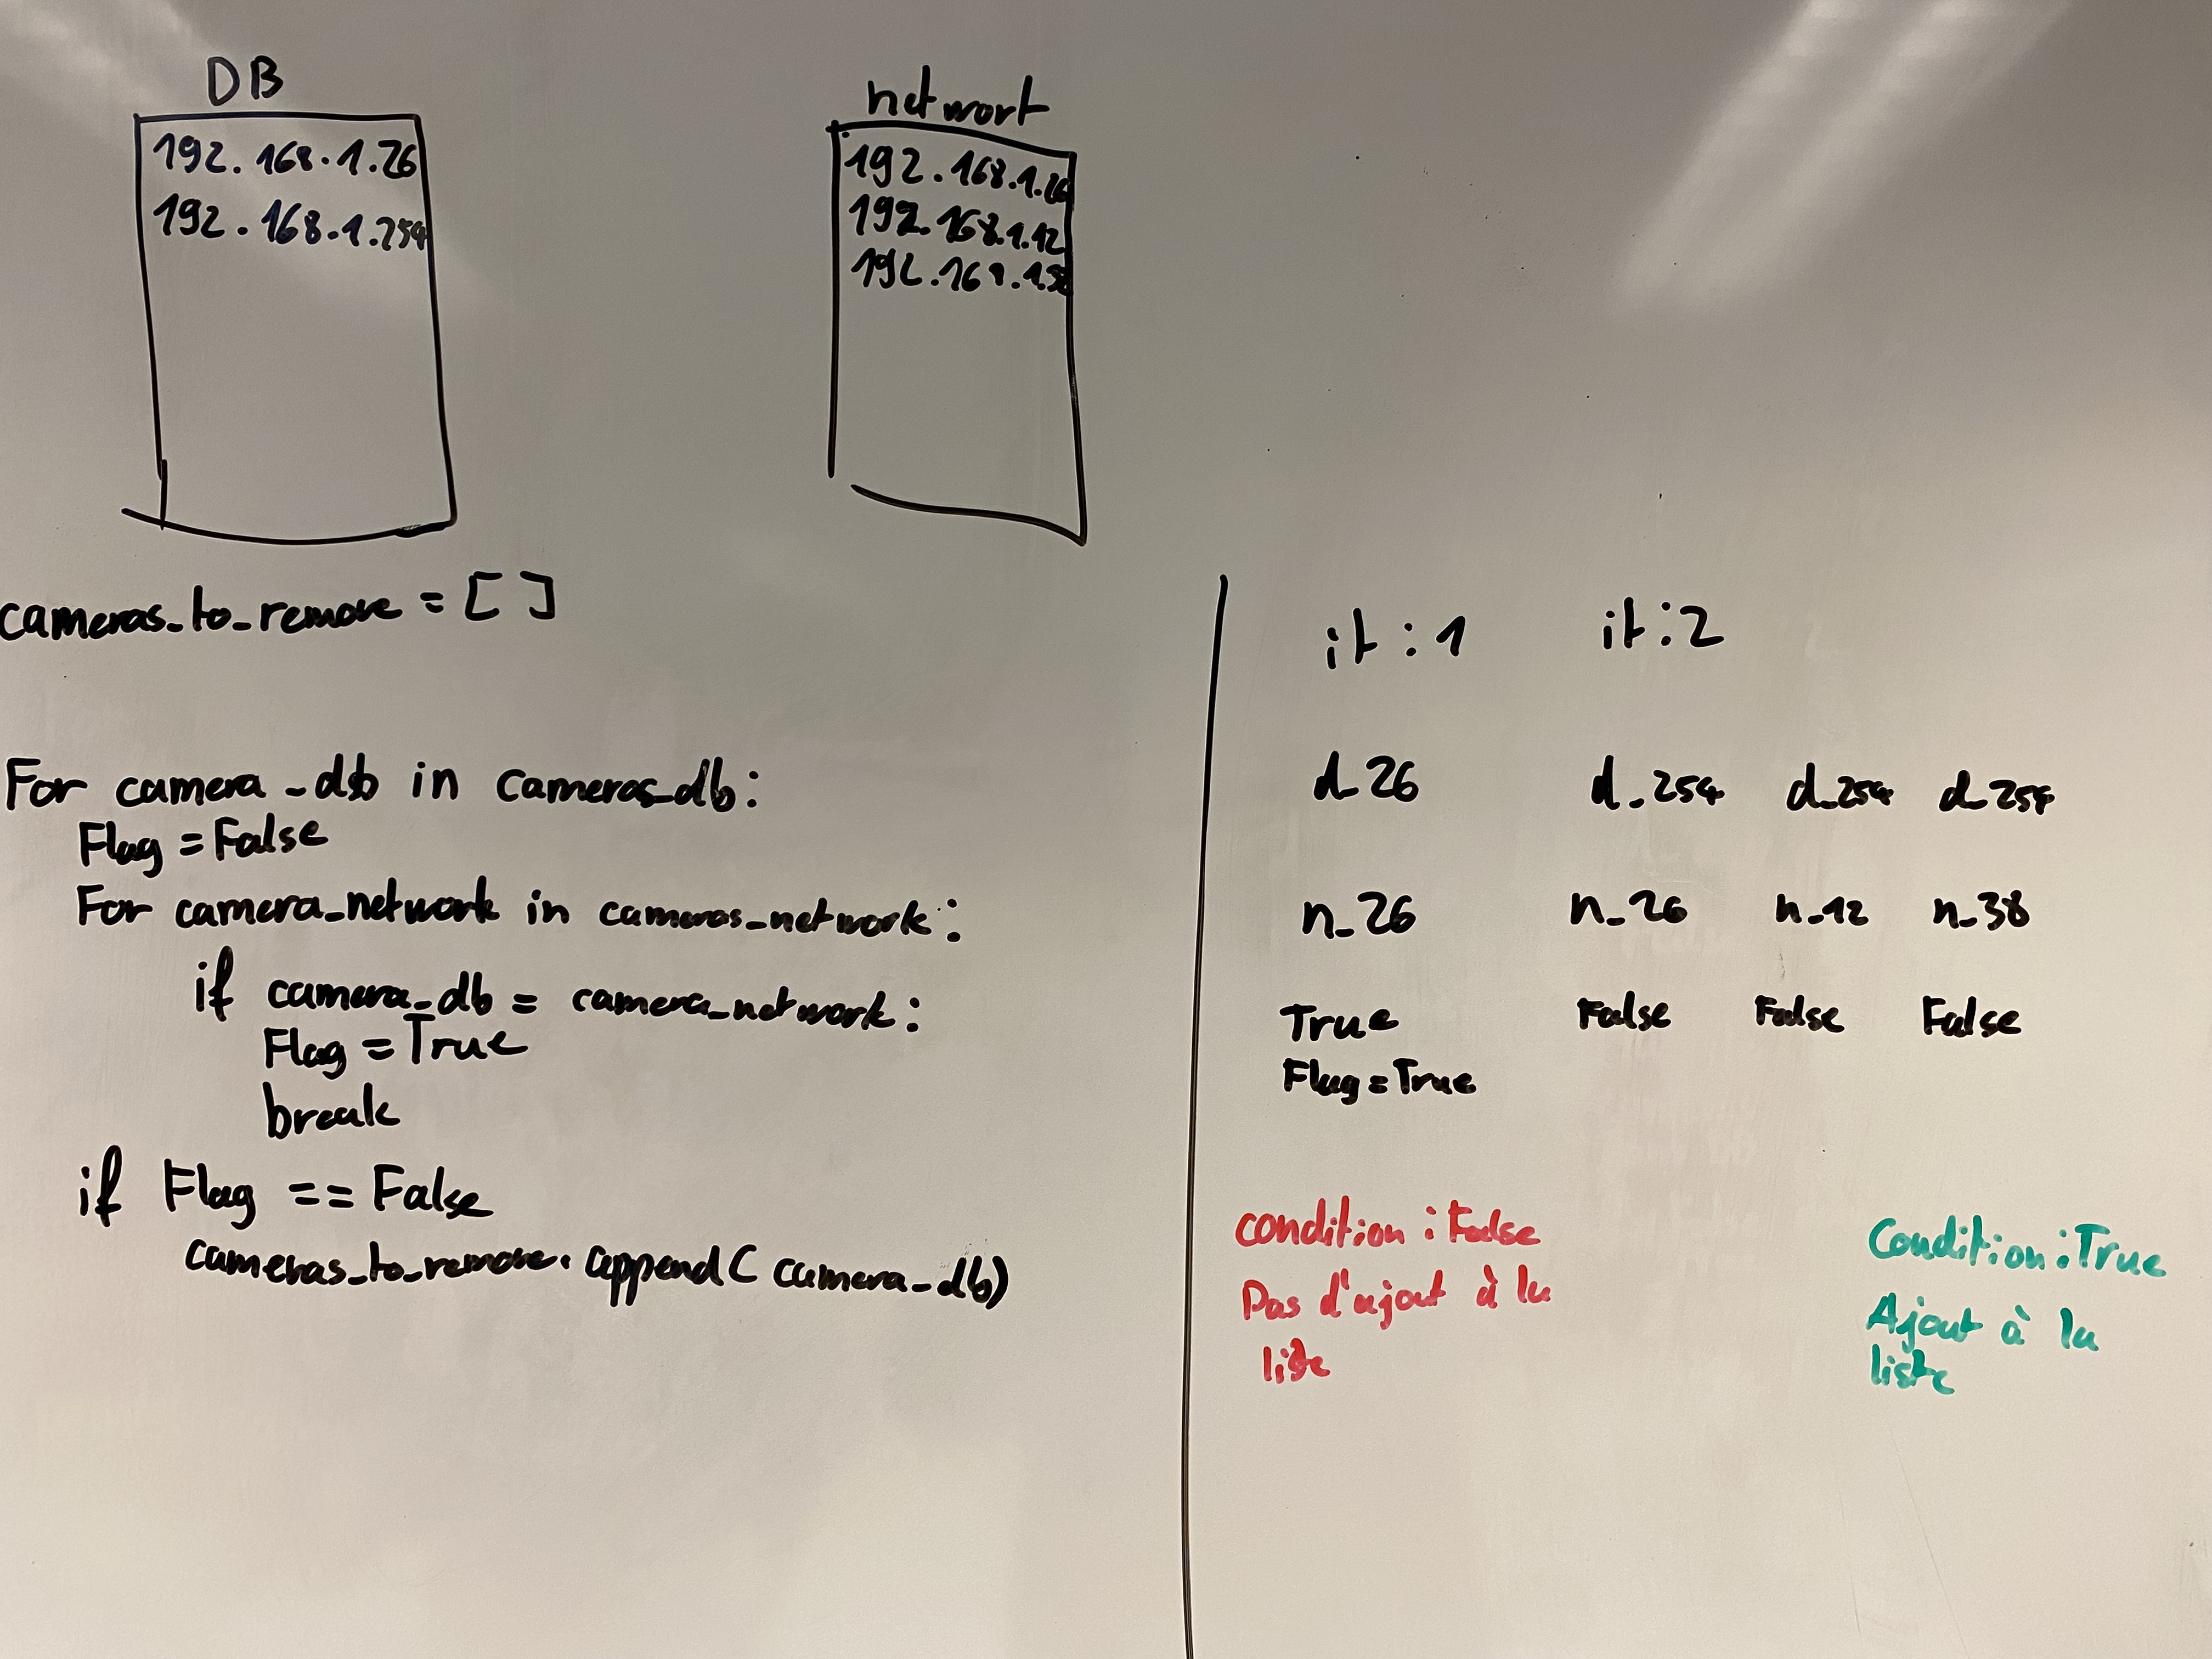 DB
192.168.1.26
192.168.1.254
networt
192.168.1.26
192.168.1.12
192.168.1.38
cameras_to_remove = []
For camera_db in cameras_db:
Flag = False
For camera_network in cameras_network:
if camera_db = camera_network:
Flag = True
break
if Flag == False
cameras_to_remove.append(camera_db)
it : 1 it : 2
d_26 d_254 d_254 d_254
n_26 n_26 n_12 n_38
True False False False
Flag = True
condition : False
Pas d'ajout à la
liste
Condition : True
Ajout à la
liste